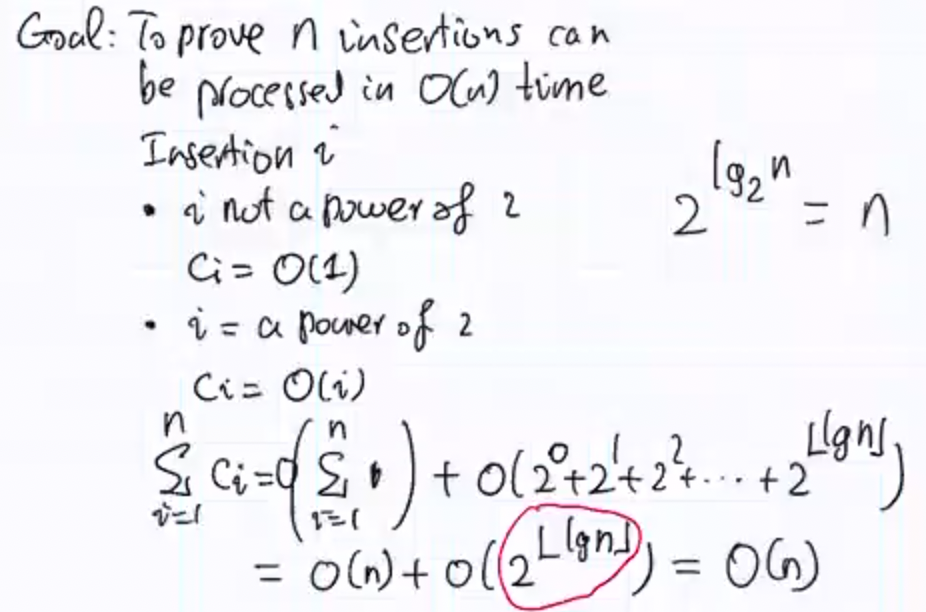 Goal: To prove n insertions can
be processed in O(n) time
Insertion i
• i not a power of 2
Ci = O(1)
• i = a power of 2
Ci = O(i)
2^{lg_2 n} = n
\sum_{i=1}^{n} Ci = O(\sum_{i=1}^{n} 1) + O(2^0 + 2^1 + 2^2 + ... + 2^{⌊lg n⌋})
= O(n) + O(2^{⌊lg n⌋}) = O(n)